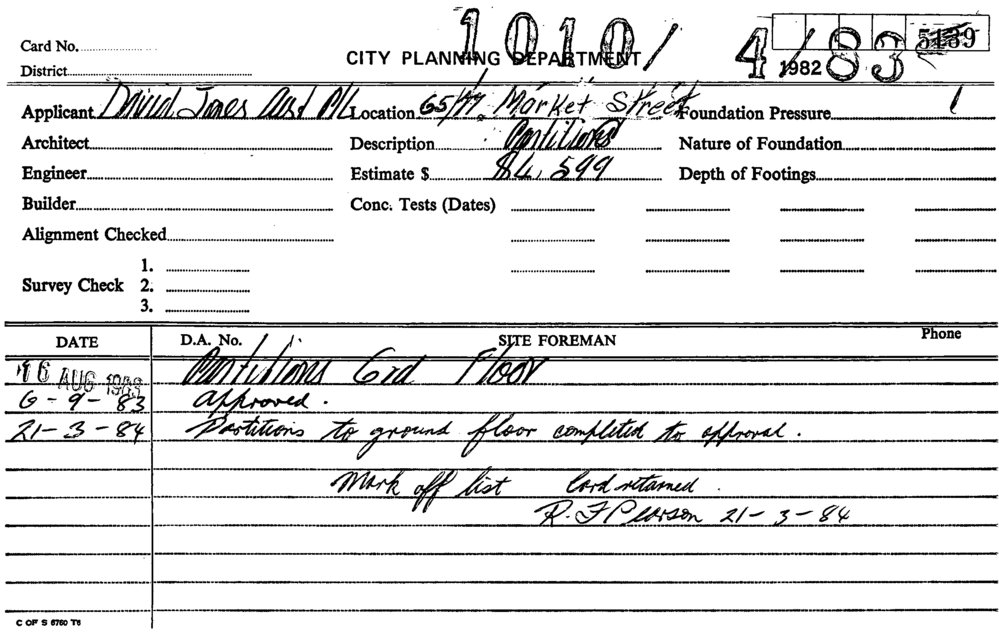 1010/ 4/83 5139
Card No.
CITY PLANNING DEPARTMENT
1982
District
Applicant David Jones Aust P/L Location 65/77 Market Street Foundation Pressure
Architect Description Partitions Nature of Foundation
Engineer Estimate $ $4,599 Depth of Footings
Builder Conc. Tests (Dates)
Alignment Checked
1.
Survey Check 2.
3.
DATE D.A. No. SITE FOREMAN Phone
16 AUG 1983 Partitions Grd Floor
6-9-83 approved.
21-3-84 Partitions to ground floor completed to approval.
Mark off list Card returned.
R.F Pearson 21-3-84
C OF S 6760 T6